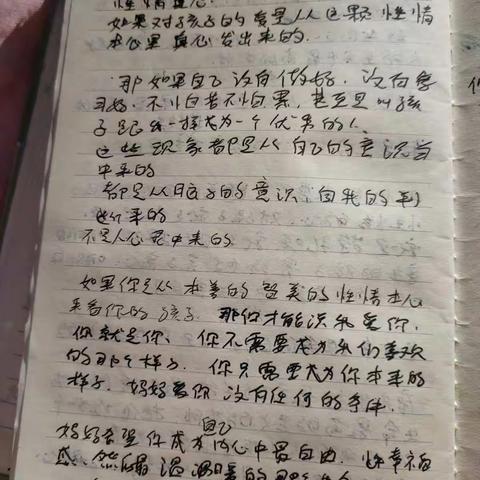 如果对孩子的爱是从这颗性情
本心里真心发出来的.
那如果自己没有做好.没有学
习好.不怕苦不怕累,甚至是叫孩
子跟我一样成为一个优秀的人.
这些现象都是从自己的意识当
中来的
都是从脑子的意识 自我的
来的
不是从心灵中来的.
如果你是从本善的 智美的性情本心
来看你的孩子.那你才能说我爱你,
你就是你、你不需要成为我们喜欢
的那个样子.你只需要成为你本来的
样子.妈妈爱你没有任何的条件.
自己
妈妈希望你成为内心中最自由、幸福
感、温暖的